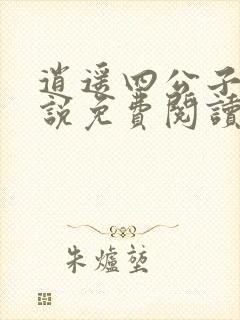 逍遥四公子
說免費閱讀
朱爐堃